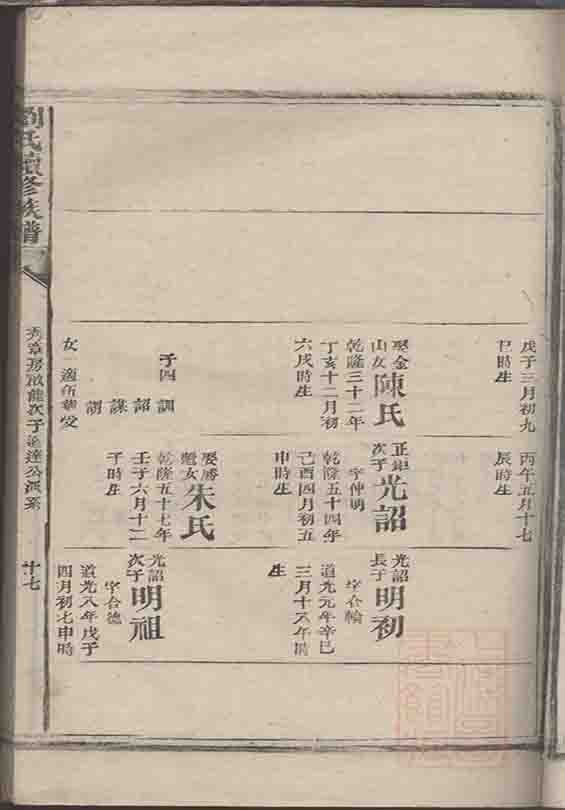 戊子三月初九
巳時生
娶金
山女
陳氏
乾隆三十二年
丁亥十二月初
六戌時生
子四
訓
詔
謀
謂
女一適
丙午五月十七
辰時生
正
次子
光詔
字仲明
乾隆五十四年
己酉四月初五
申時生
娶勝
魁女
朱氏
乾隆五十七年
壬子六月十二
子時生
光詔
長子
明初
字合輪
道光元年辛巳
三月十六午時
生
光詔
次子
明祖
字合德
道光八年戊子
四月初七申時
劉氏續修族譜
秀章房啟龍次子遙達公派系
廿七